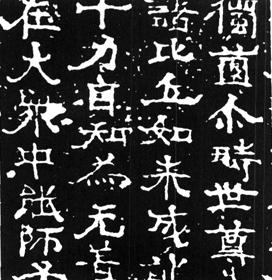 獨薗尒時世尊
諸比丘如来成就
十力自知為无著
在大眾中能師